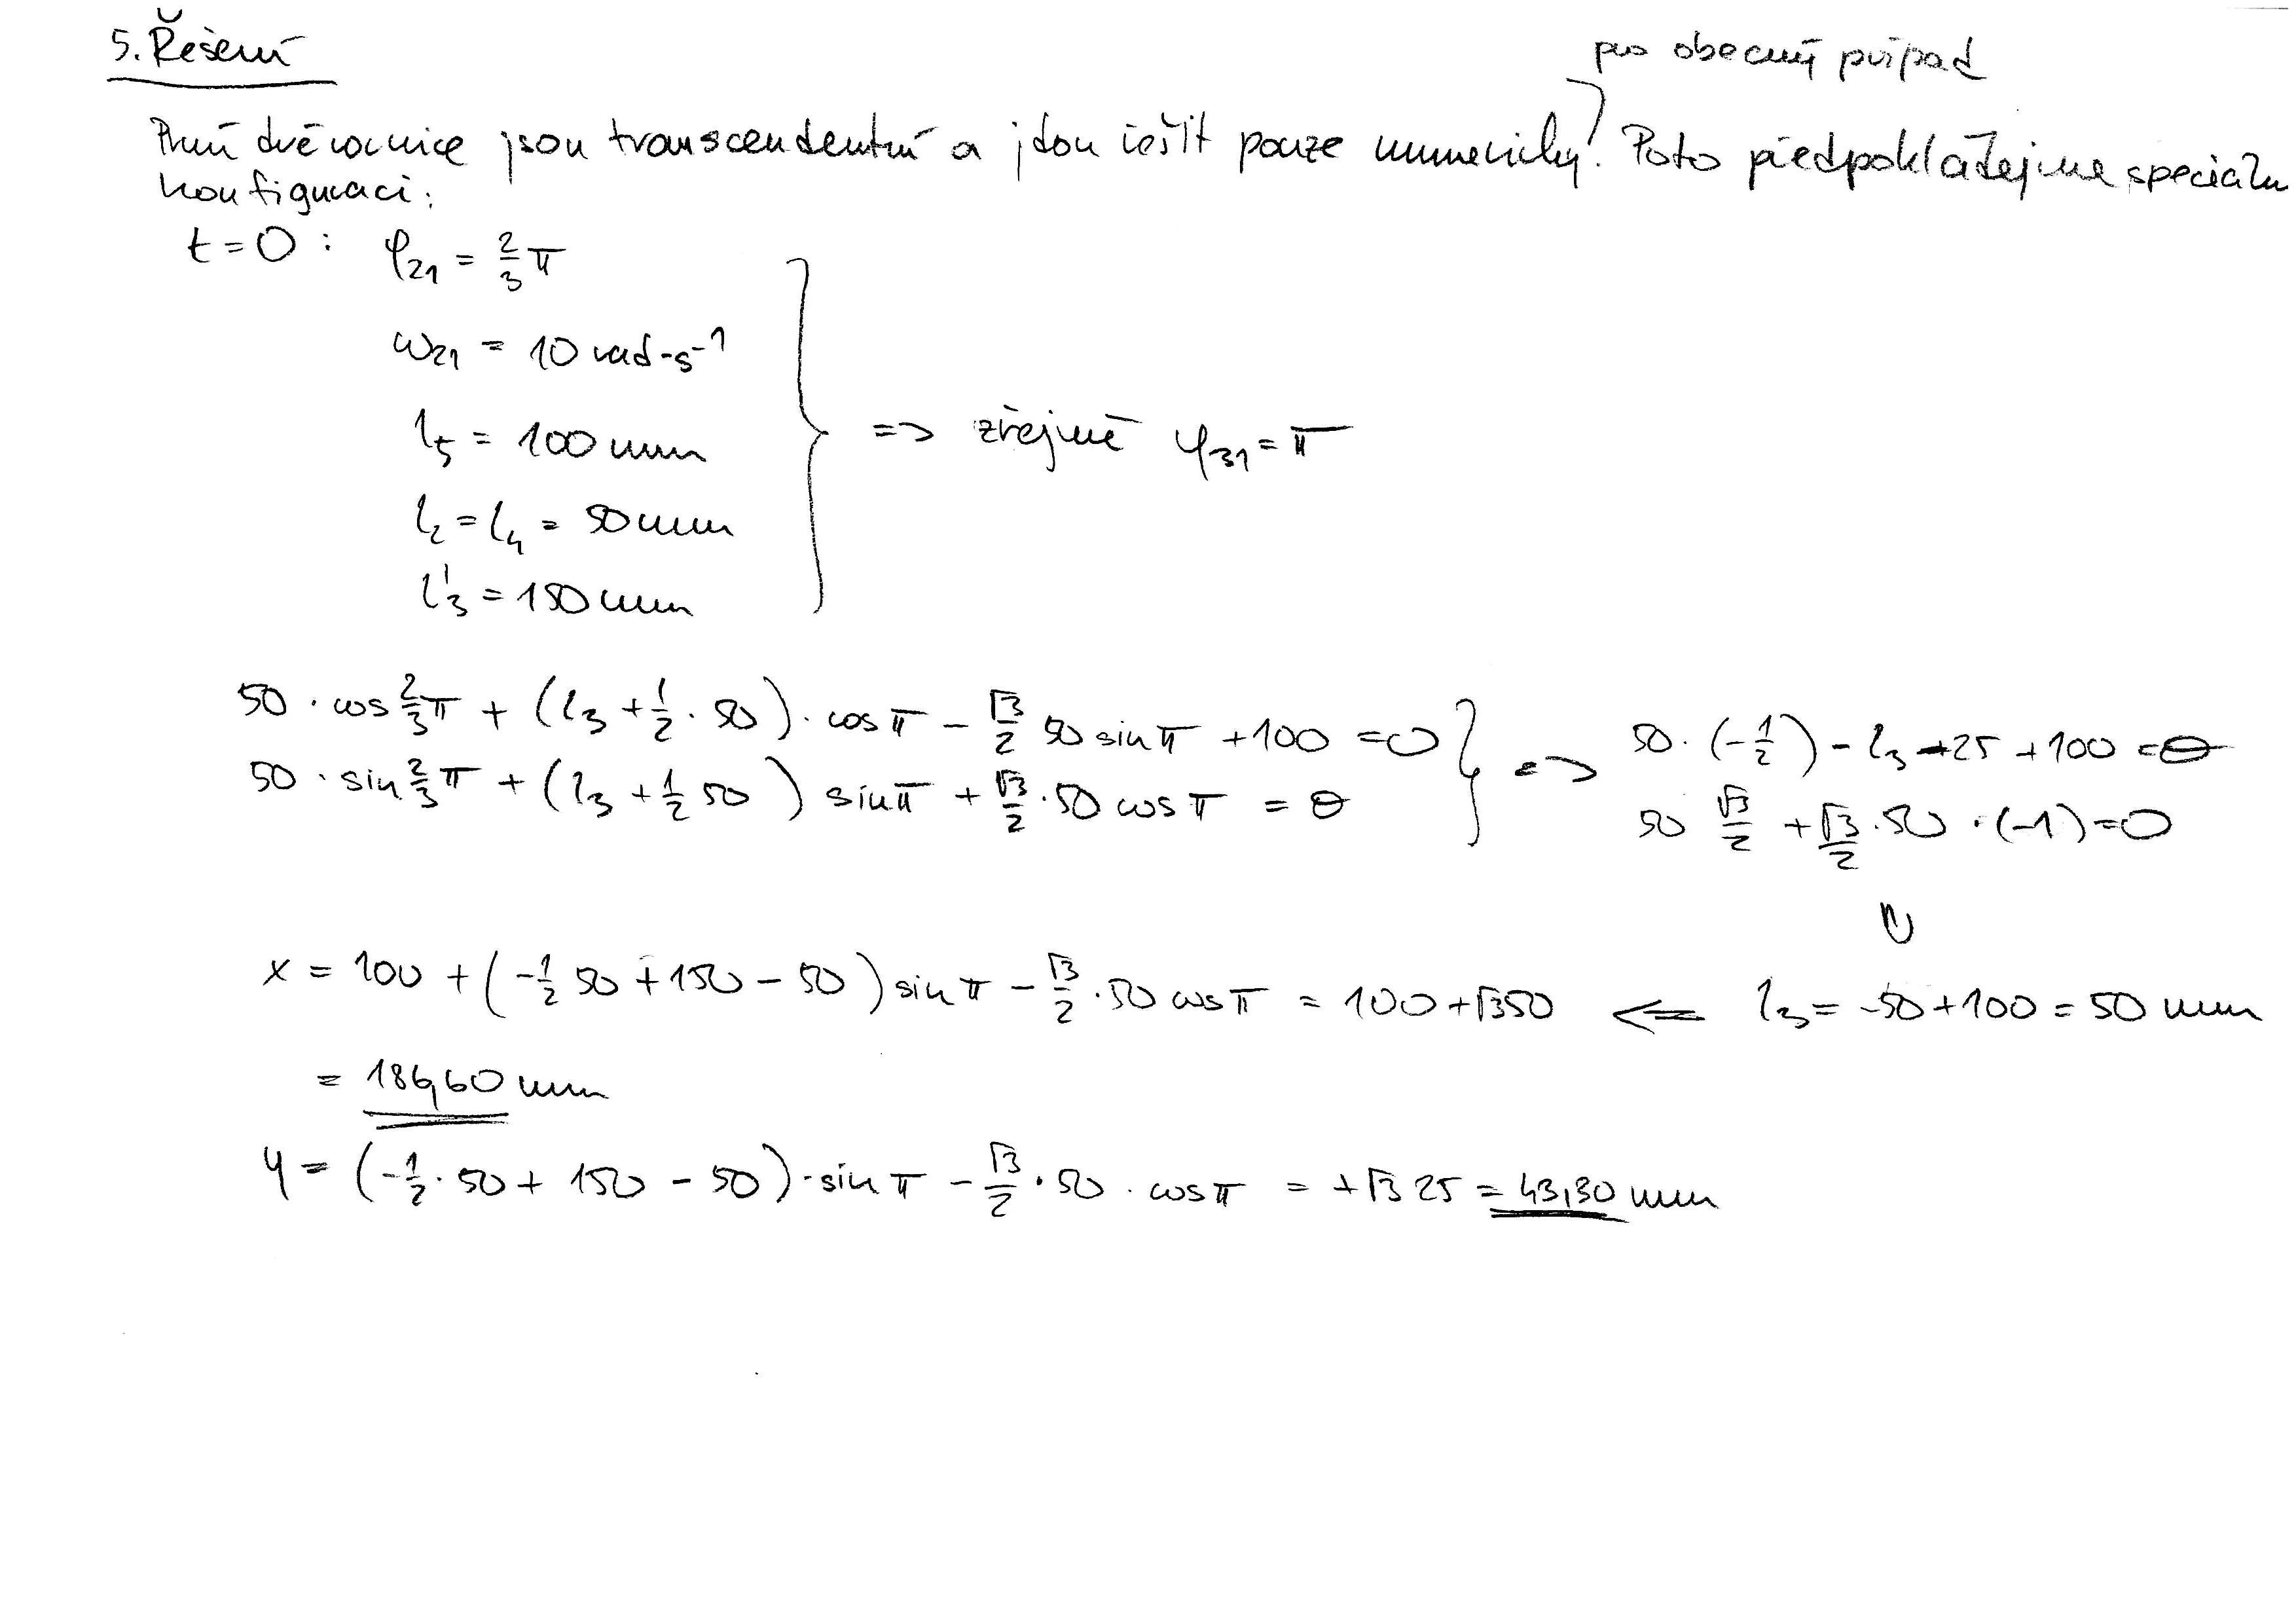 5. Řešení
pro obecný případ
První dvě rovnice jsou transcendentní a jdou řešit pouze numericky. Proto předpokládejme speciální
konfiguraci:
t = 0 : φ21 = 2/3 π
ω21 = 10 rad·s⁻¹
l5 = 100 mm
=> zřejmě φ31 = π
l2 = l4 = 50 mm
l'3 = 150 mm
50 · cos 2/3 π + (l3 + 1/2 · 50) · cos π − √3/2 50 sin π + 100 = 0
50 · sin 2/3 π + (l3 + 1/2 50) sin π + √3/2 · 50 cos π = 0
=> 50 · (−1/2) − l3 − 25 + 100 = 0
50 √3/2 + √3/2 · 50 · (−1) = 0
⇓
x = 100 + (−1/2 50 + 150 − 50) sin π − √3/2 · 50 cos π = 100 + √3 50 <= l3 = −50 + 100 = 50 mm
= 186,60 mm
y = (−1/2 · 50 + 150 − 50) · sin π − √3/2 · 50 · cos π = + √3 25 = 43,30 mm